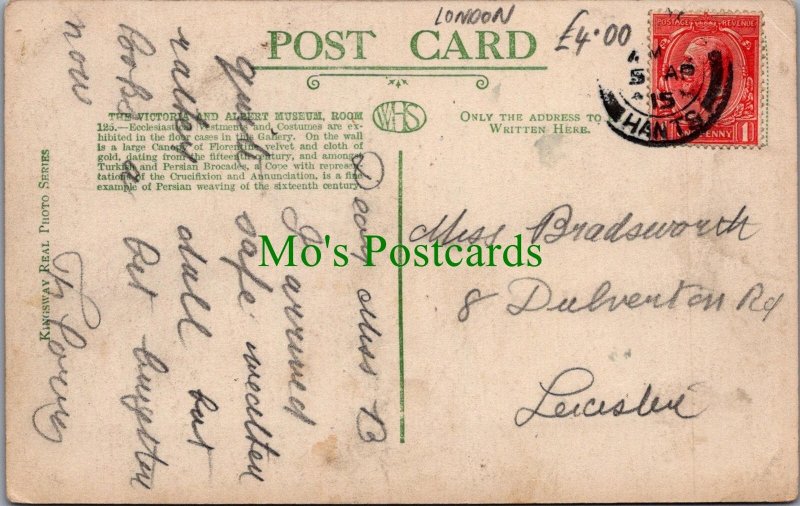 LONDON
£4.00
POST CARD
THE VICTORIA AND ALBERT MUSEUM, ROOM
125.—Ecclesiastical Vestments and Costumes are ex-
hibited in the floor cases in this Gallery. On the wall
is a large Canopy of Florentine velvet and cloth of
gold, dating from the fifteenth century, and among
Turkish and Persian Brocades, a Cope with represen-
tations of the Crucifixion and Annunciation, is a fine
example of Persian weaving of the sixteenth century
WHS
ONLY THE ADDRESS TO BE
WRITTEN HERE.
POSTAGE REVENUE
PENNY 1
5 AP
15
HANTS
KINGSWAY REAL PHOTO SERIES
Dear Miss B
I arrived
quite safe weather
rather dull but
looks a bit brighter
now
Miss Bradsworth
8 Dulverton Rd
Leicester
Mo's Postcards